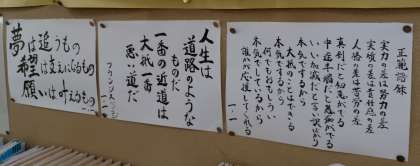 正範語録
実力の差は努力の差
実績の差は責任感の差
人格の差は苦労の差
真剣だと知恵がでる
中途半端だと愚痴がでる
いい加減だと言い訳ばかり
本気でするから
大抵のことはできる
本気でするから
何でもおもしろい
本気でしているから
誰かが応援してくれる
人生は
道路のような
ものだ
一番の近道は
大抵一番
悪い道だ
夢は追うもの
希望は支えになるもの
願いは叶えるもの